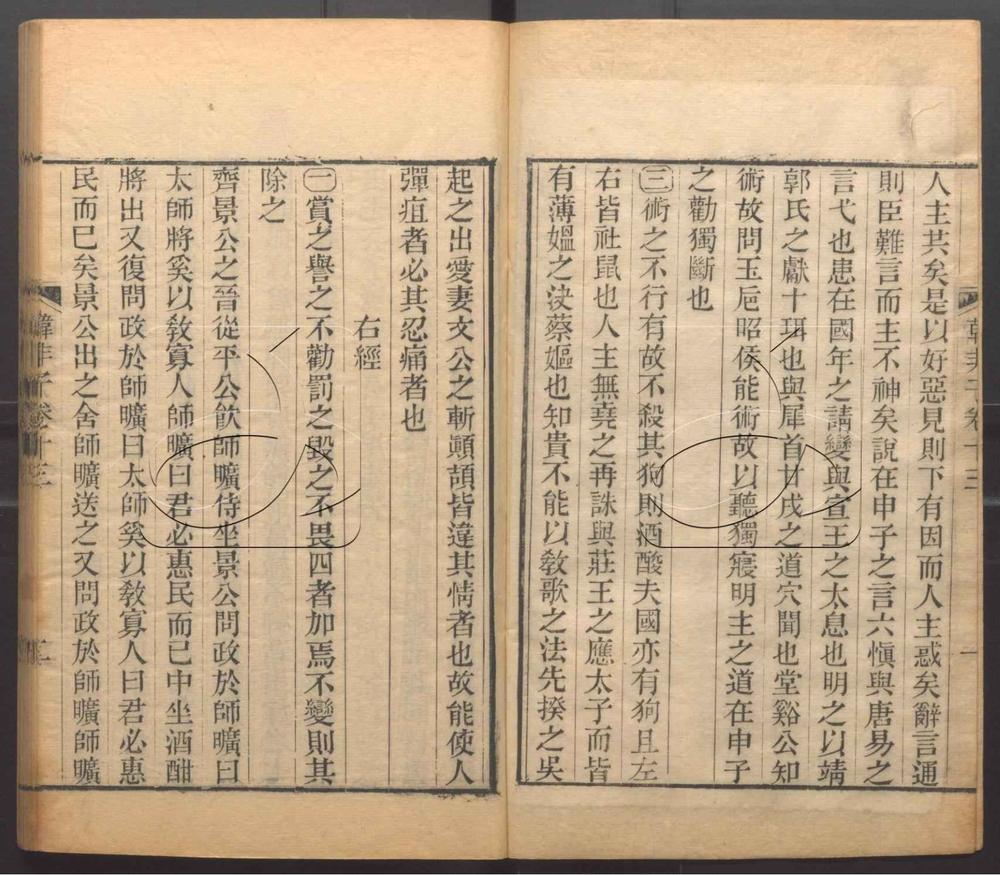 人主共矣是以好惡見則下有因而人主惑矣辭言通
則臣難言而主不神矣說在申子之言六愼與唐易之
言弋也患在國年之請變與宣王之太息也明之以靖
郭氏之獻十珥也與犀首甘戊之道穴聞也堂谿公知
術故問玉巵昭侯能術故以聽獨寢明主之道在申子
之勸獨斷也
三術之不行有故不殺其狗則酒酸夫國亦有狗且左
右皆社鼠也人主無堯之再誅與莊王之應太子而皆
有薄媼之決蔡嫗也知貴不能以敎歌之法先揆之吳
韓非子卷十三
一
起之出愛妻文公之斬顚頡皆違其情者也故能使人
彈疽者必其忍痛者也
右經
一賞之譽之不勸罰之毀之不畏四者加焉不變則其
除之
齊景公之晉從平公飮師曠侍坐景公問政於師曠曰
太師將奚以敎寡人師曠曰君必惠民而已中坐酒酣
將出又復問政於師曠曰太師奚以敎寡人曰君必惠
民而巳矣景公出之舍師曠送之又問政於師曠師曠
韓非子卷十三
二